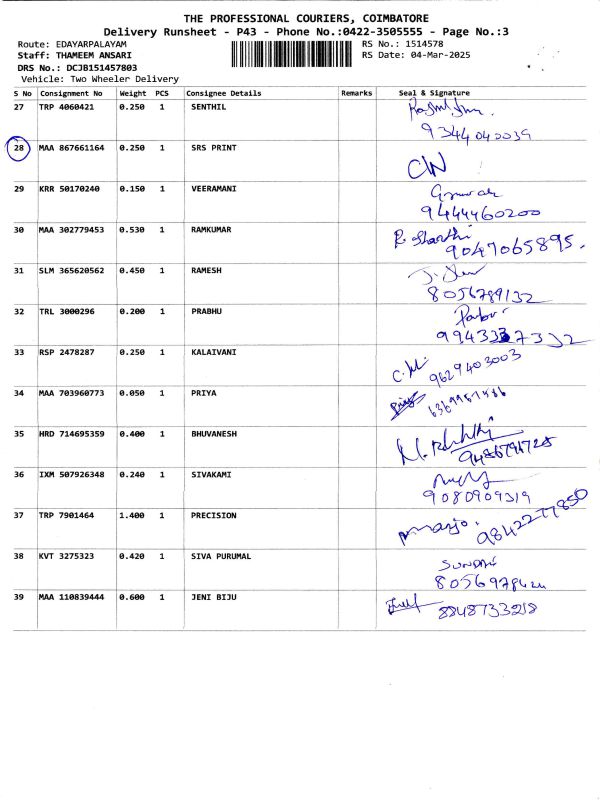 THE PROFESSIONAL COURIERS, COIMBATORE
Delivery Runsheet - P43 - Phone No.:0422-3505555 - Page No.:3
Route: EDAYARPALAYAM RS No.: 1514578
Staff: THAMEEM ANSARI RS Date: 04-Mar-2025
DRS No.: DCJB151457803
Vehicle: Two Wheeler Delivery
S No Consignment No Weight PCS Consignee Details Remarks Seal & Signature
27 TRP 4060421 0.250 1 SENTHIL
9344040039
28 MAA 867661164 0.250 1 SRS PRINT
29 KRR 50170240 0.150 1 VEERAMANI
9444460200
30 MAA 302779453 0.530 1 RAMKUMAR
9047065895.
31 SLM 365620562 0.450 1 RAMESH
8056789132
32 TRL 3000296 0.200 1 PRABHU
33 RSP 2478287 0.250 1 KALAIVANI
9629403003
34 MAA 703960773 0.050 1 PRIYA
35 HRD 714695359 0.400 1 BHUVANESH
36 IXM 507926348 0.240 1 SIVAKAMI
9080909319
37 TRP 7901464 1.400 1 PRECISION
9842277850
38 KVT 3275323 0.420 1 SIVA PURUMAL
39 MAA 110839444 0.600 1 JENI BIJU